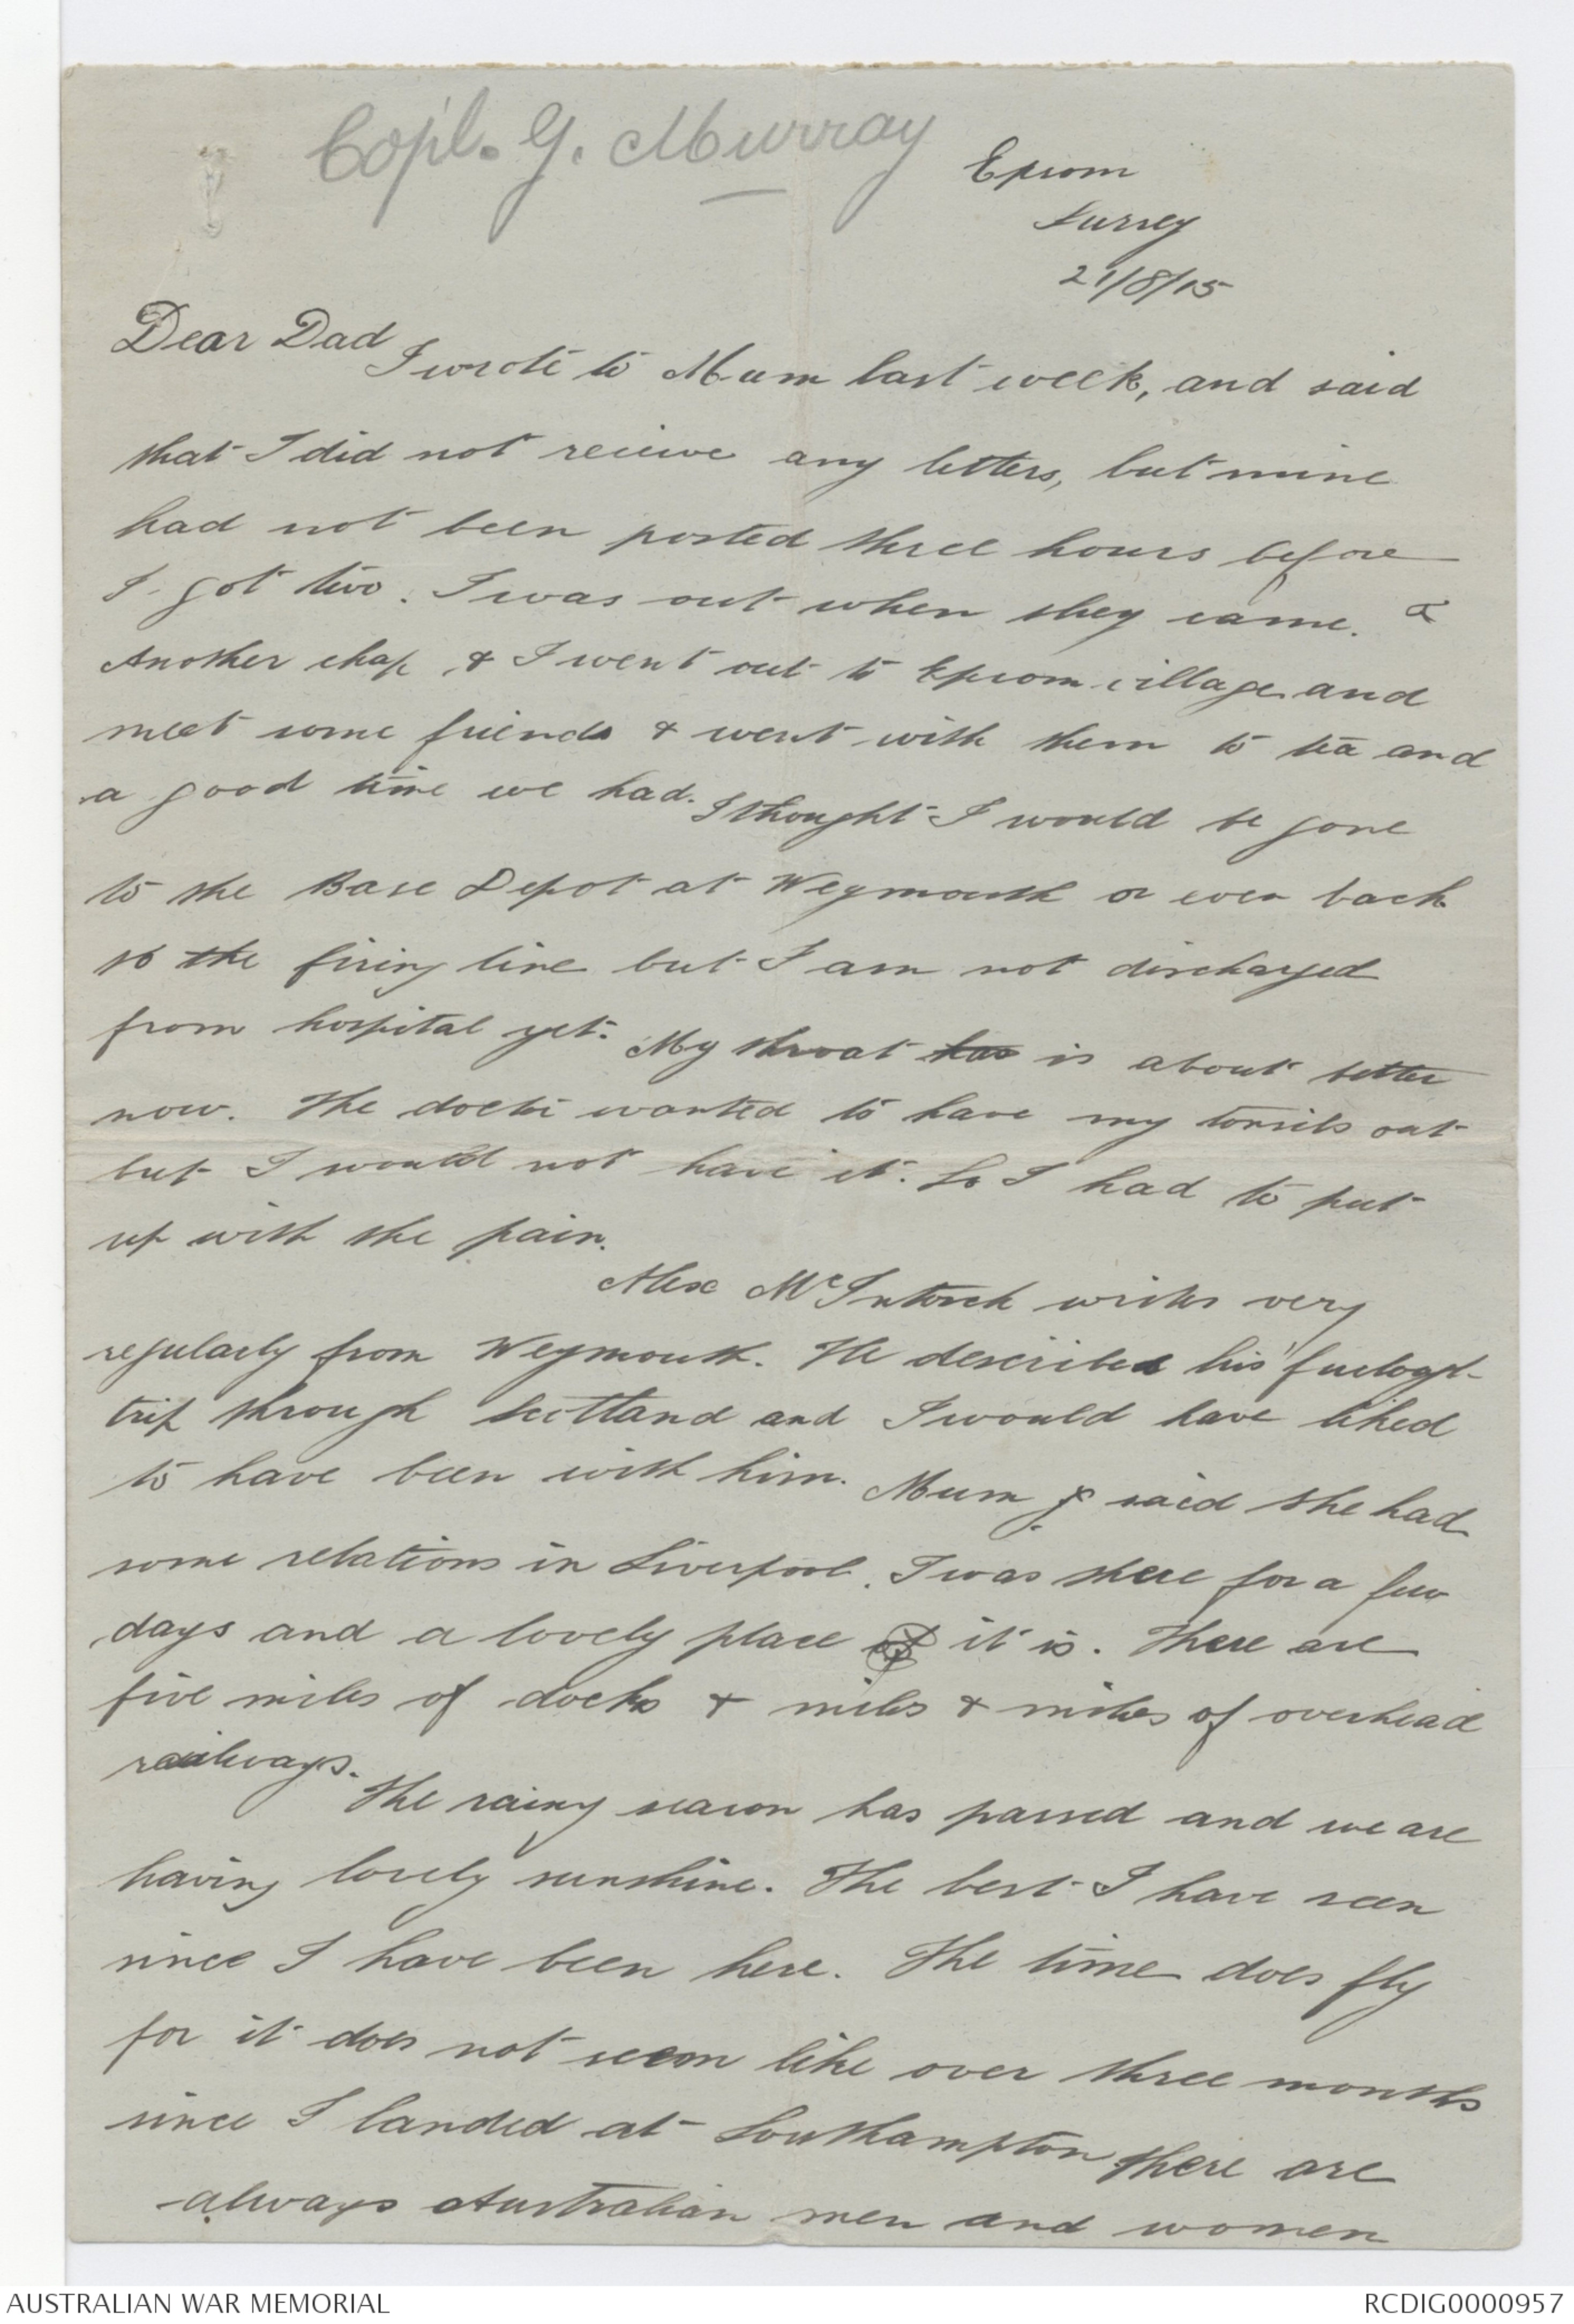 Copl. G. Murray
Epsom
Surrey
21/8/15
Dear Dad
I wrote to Mum last week, and said
that I did not recieve any letters, but mine
had not been posted three hours before
I got two. I was out when they came. &
Another chap & I went out to Epsom village and
meet some friends & went with them to tea and
a good time we had. I thought I would be gone
to the Base Depot at Weymouth or even back
to the firing line but I am not discharged
from hospital yet. My throat has is about better
now. The doctor wanted to have my tonsils out
but I would not have it. So I had to put
up with the pain.
Alex McIntosh writes very
regularly from Weymouth. He described his furlough
trip through Scotland and I would have liked
to have been with him. Mum said she had
some relations in Liverpool. I was there for a few
days and a lovely place of it is. There are
five miles of docks & miles & miles of overhead
railways.
The rainy season has passed and we are
having lovely sunshine. The best I have seen
since I have been here. The time does fly
for it does not seem like over three months
since I landed at Southampton there are
always Australian men and women
AUSTRALIAN WAR MEMORIAL
RCDIG0000957